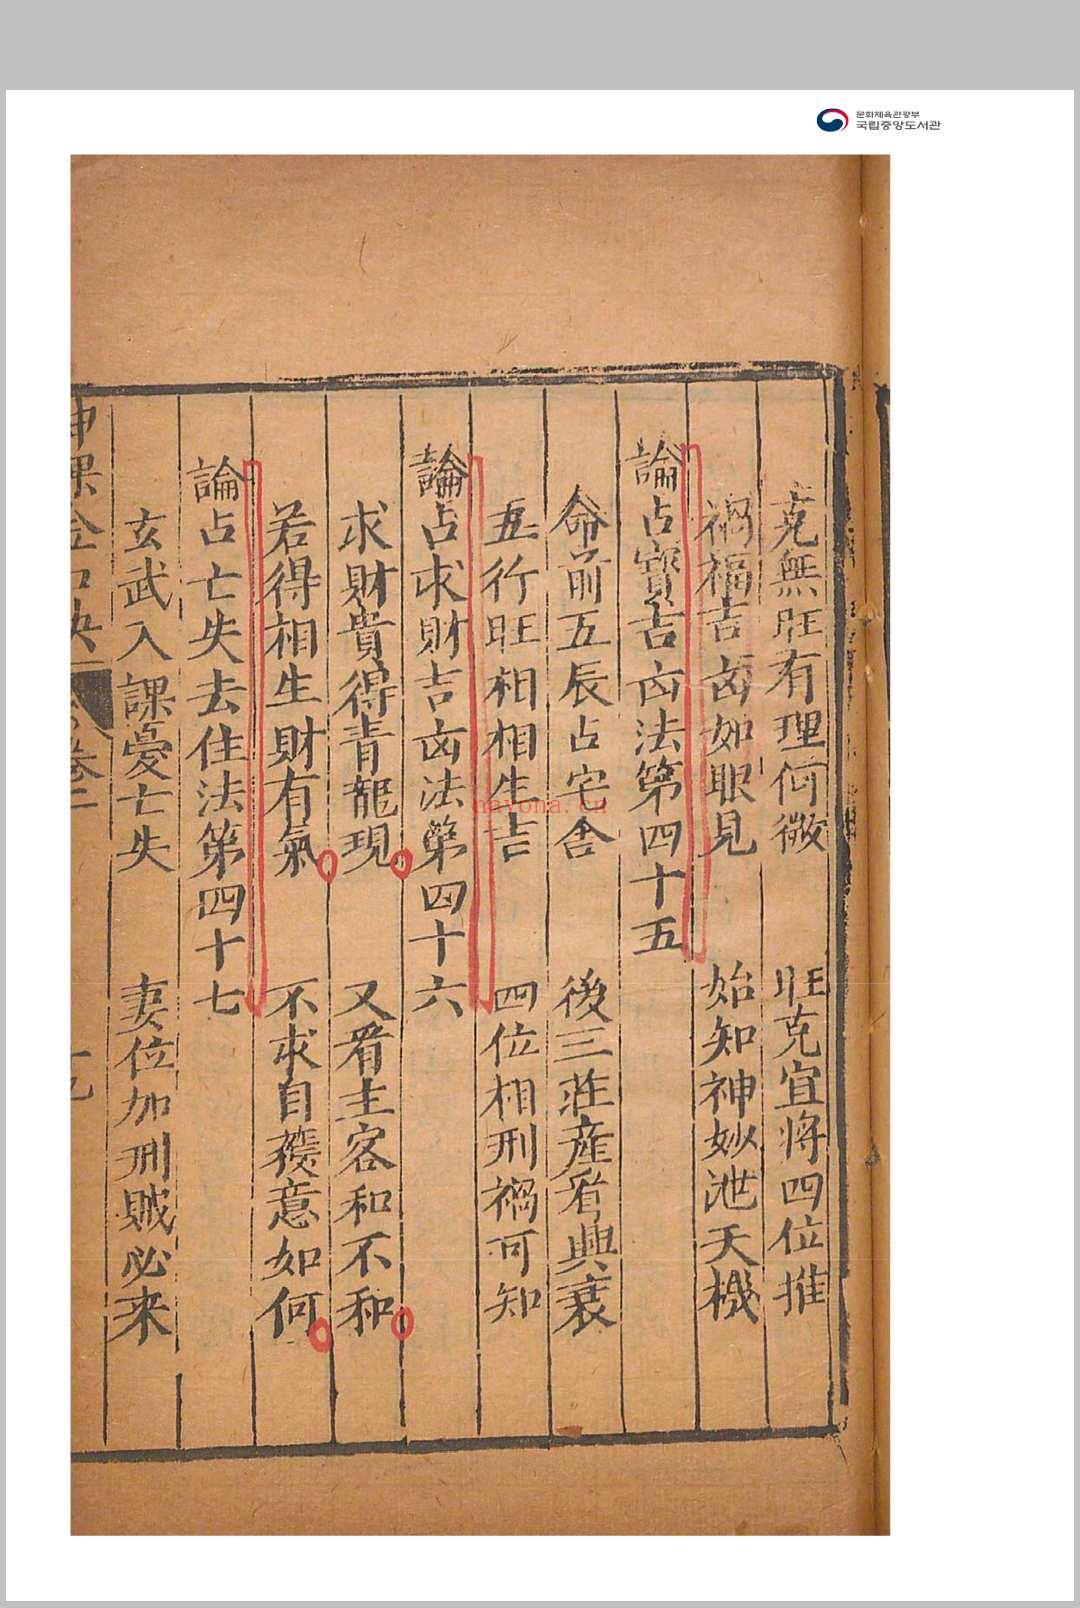 문화체육관광부
국립중앙도서관
克無旺有理何微 旺克宜將四位推
禍福吉凶如眼見 始知神妙泄天機
論占寳吉凶法第四十五
命前五辰占宅舍 後三莊產看興衰
五行旺相相生吉 四位相刑禍可知
論占求財吉凶法第四十六
求財貴得青龍現 又看主客和不和
若得相生財有氣 不求自獲意如何
論占亡失去住法第四十七
玄武入課憂亡失 妻位加刑賊必来
神課金口訣 卷二 十九
nayona.cn